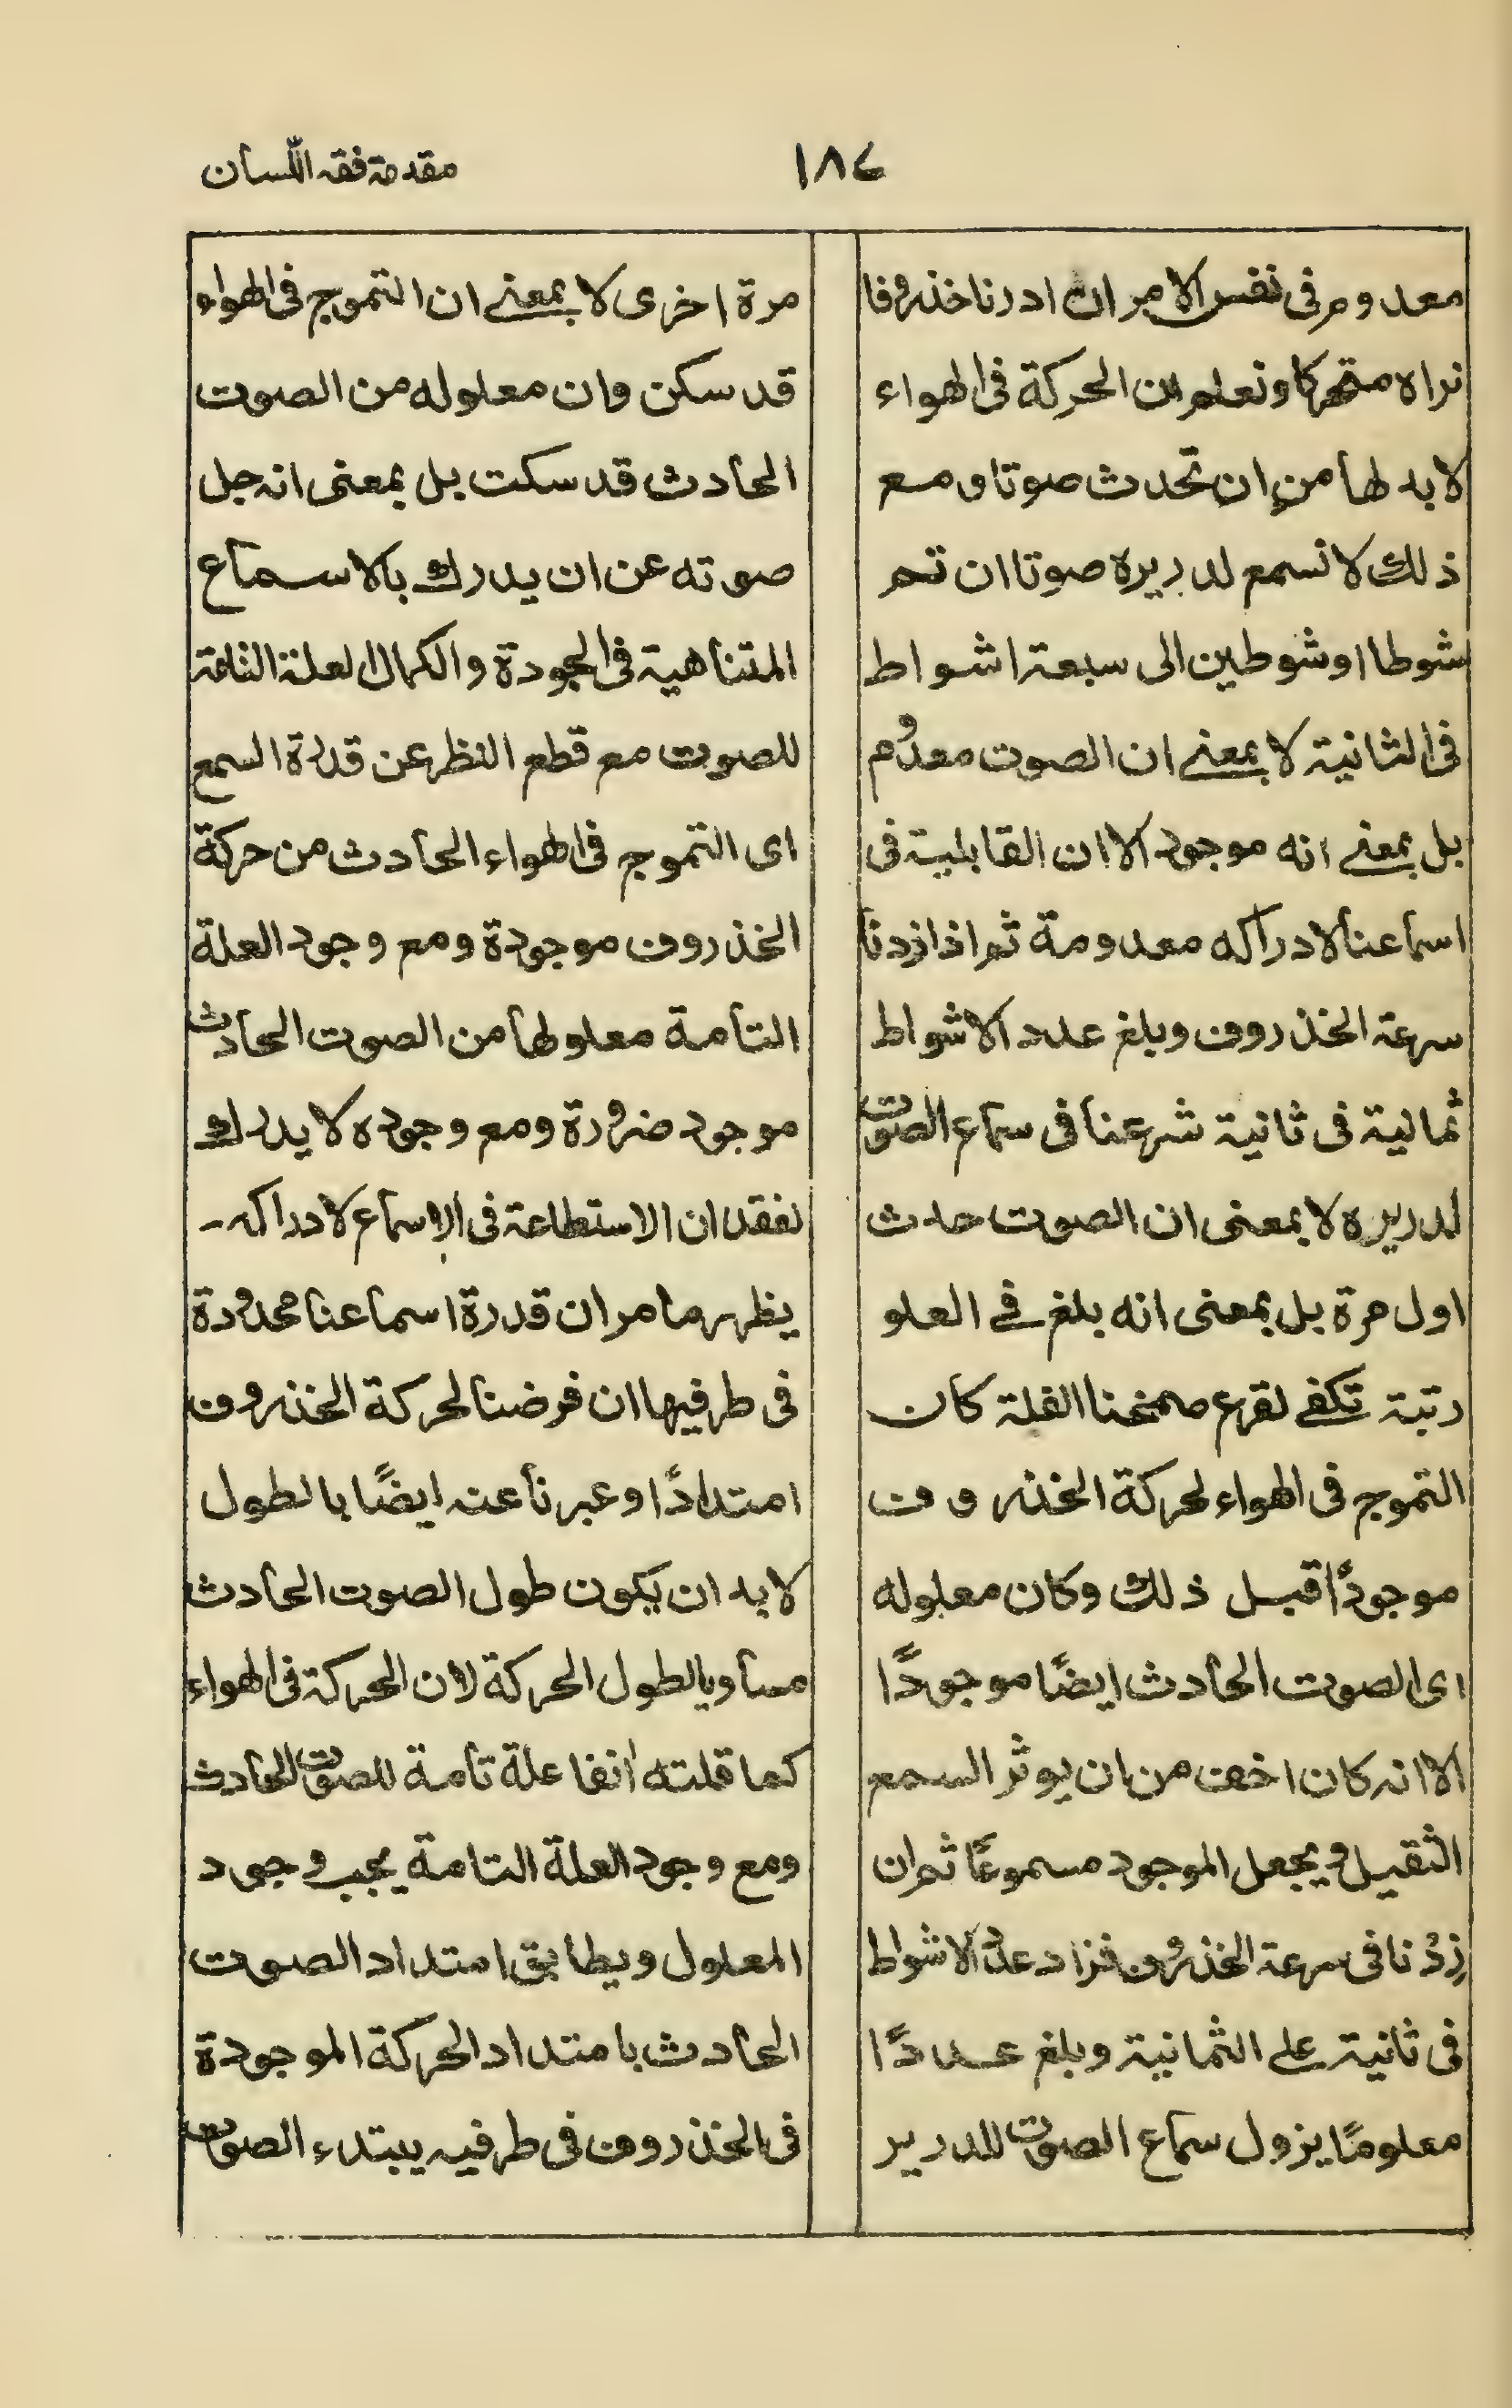 مقدمة فقه اللّسان
١٨٤
معدوم فى نفس الامر ان ادرنا خذروفا
نراه متحركا ونعلم ان الحركة فى الهواء
لابد لها من ان تحدث صوتا ومع
ذلك لا نسمع لدريره صوتا ان تم
شوطا او شوطين الى سبعة اشواط
فى الثانية لا بمعنے ان الصوت معدُوم
بل بمعنے انه موجود الا ان القابلية فى
اسماعنا لادراكه معدومة ثم اذا زدنا
سرعة الخذروف وبلغ عدد الاشواط
ثمانية فى ثانية شرعنا فى سماع الصوت
لدريره لا بمعنى ان الصوت حدث
اول مرة بل بمعنى انه بلغ فے العلو
رتبة تكفے لقرع صمخنا الغلة كان
التموج فى الهواء لحركة الخذروف
موجودًا قبل ذلك وكان معلوله
اى الصوت الحادث ايضًا موجودًا
الا انه كان اخف من ان يوثر السمع
الثقيل ويجعل الموجود مسموعًا ثم ان
زِدْنا فى سرعة الخذروف فزاد عدد الاشواط
فى ثانية على الثمانية وبلغ عددًا
معلومًا يزول سماع الصوت للدرير
مرة اخرى لا بمعنے ان التموج فى الهواء
قد سكن وان معلوله من الصوت
الحادث قد سكت بل بمعنى انه جل
صوته عن ان يدرك بالاسماع
المتناهية فى الجودة والكمال العلة التامة
للصوت مع قطع النظر عن قدرة السمع
اى التموج فى الهواء الحادث من حركة
الخذروف موجودة ومع وجود العلة
التامة معلولها من الصوت الحادث
موجود ضرورة ومع وجوده لا يدرك
لفقدان الاستطاعة فى الاسماع لادراكه ۔
يظهر مما مر ان قدرة اسماعنا محدودة
فى طرفيها ان فرضنا لحركة الخذروف
امتدادًا وعبرنا عنه ايضًا بالطول
لابد ان يكون طول الصوت الحادث
مساويا لطول الحركة لان الحركة فى الهواء
كما قلته انفا علة تامة للصوت الحادث
ومع وجود العلة التامة يجب وجود
المعلول ويطابق امتداد الصوت
الحادث بامتداد الحركة الموجودة
فى الخذروف فى طرفيه يبتدء الصوت